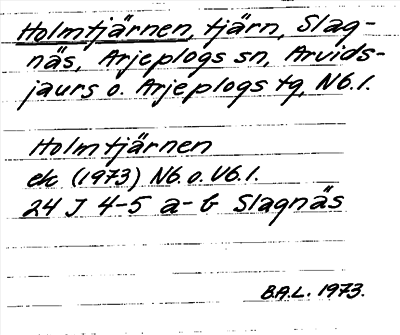 Holmtjärnen, tjärn, Slag-
näs, Arjeplogs sn, Arvids-
jaurs o. Arjeplogs tg, Nb. l.
Holmtjärnen
ek (1973) Nb. o. Vb. l.
24 J 4-5 a-b Slagnäs
B.A.L. 1973.